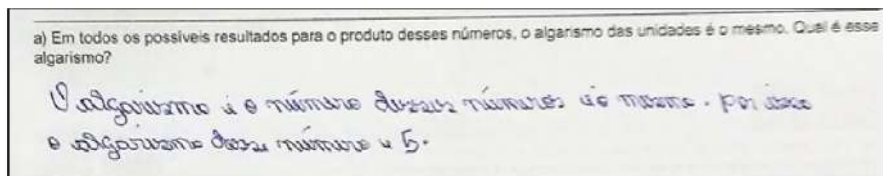 a) Em todos os possíveis resultados para o produto desses números, o algarismo das unidades é o mesmo. Qual é esse
algarismo?
O algarismo é o número desses números é o mesmo. por isso
o algarismo desse número é 5.